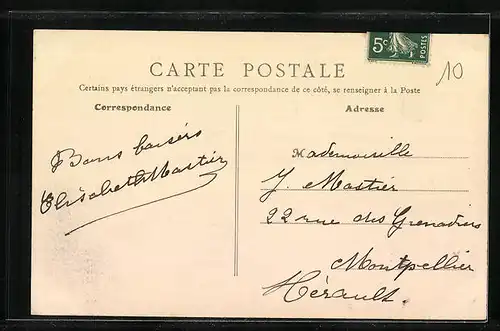 5c
POSTES
10
CARTE POSTALE
Certains pays étrangers n'acceptant pas la correspondance de ce côté, se renseigner à la Poste
Correspondance
Bons baisers
Elisabeth Mastier
Adresse
Mademoiselle
J. Mastier
22 rue des Grenadiers
Montpellier
Hérault.